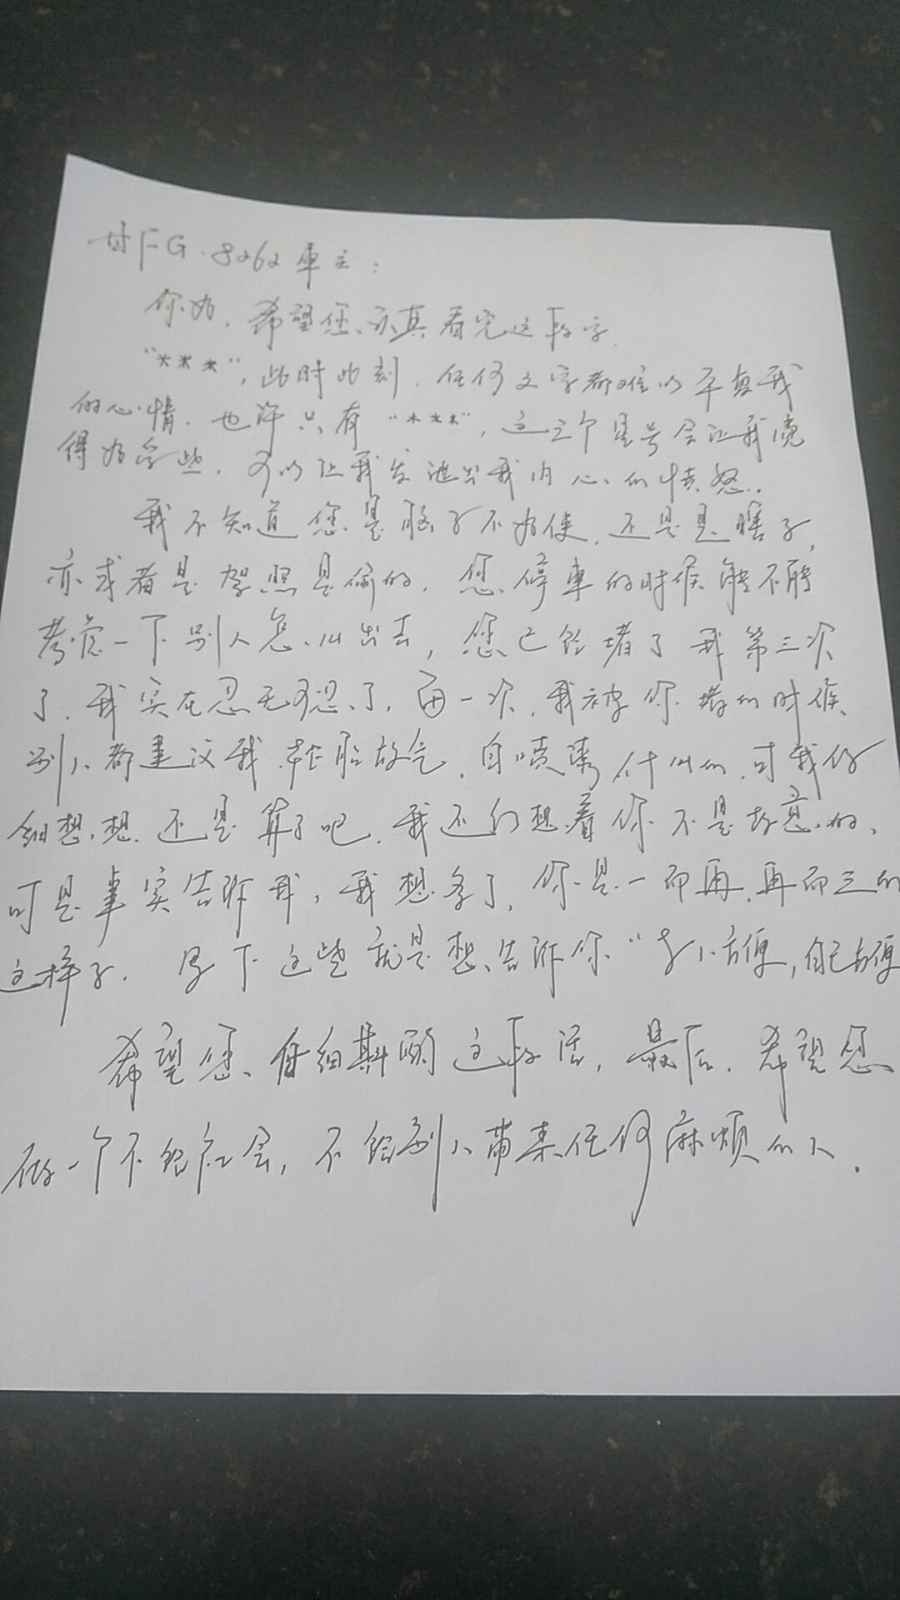 甘FG·8262车主:
你好,希望您认真看完这段字.
"***",此时此刻,任何文字都难以平复我
的心情.也许只有"***",这三个星号会让我觉
得好受些,可以让我发泄出我内心的愤怒.
我不知道您是脑子不好使,还是是瞎子,
亦或者是驾照是偷的,您停车的时候能不能
考虑一下别人怎么出去,您已经堵了我第三次
了,我实在忍无可忍了,每一次,我被你堵的时候
别人都建议我轮胎放气,自喷漆什么的,可我仔
细想想,还是算了吧,我还幻想着你不是故意的,
可是事实告诉我,我想多了,你是一而再,再而三的
这样子.写下这些就是想告诉你"与人方便,自己方便
希望您仔细斟酌这段话,最后,希望您
做一个不给社会,不给别人带来任何麻烦的人.